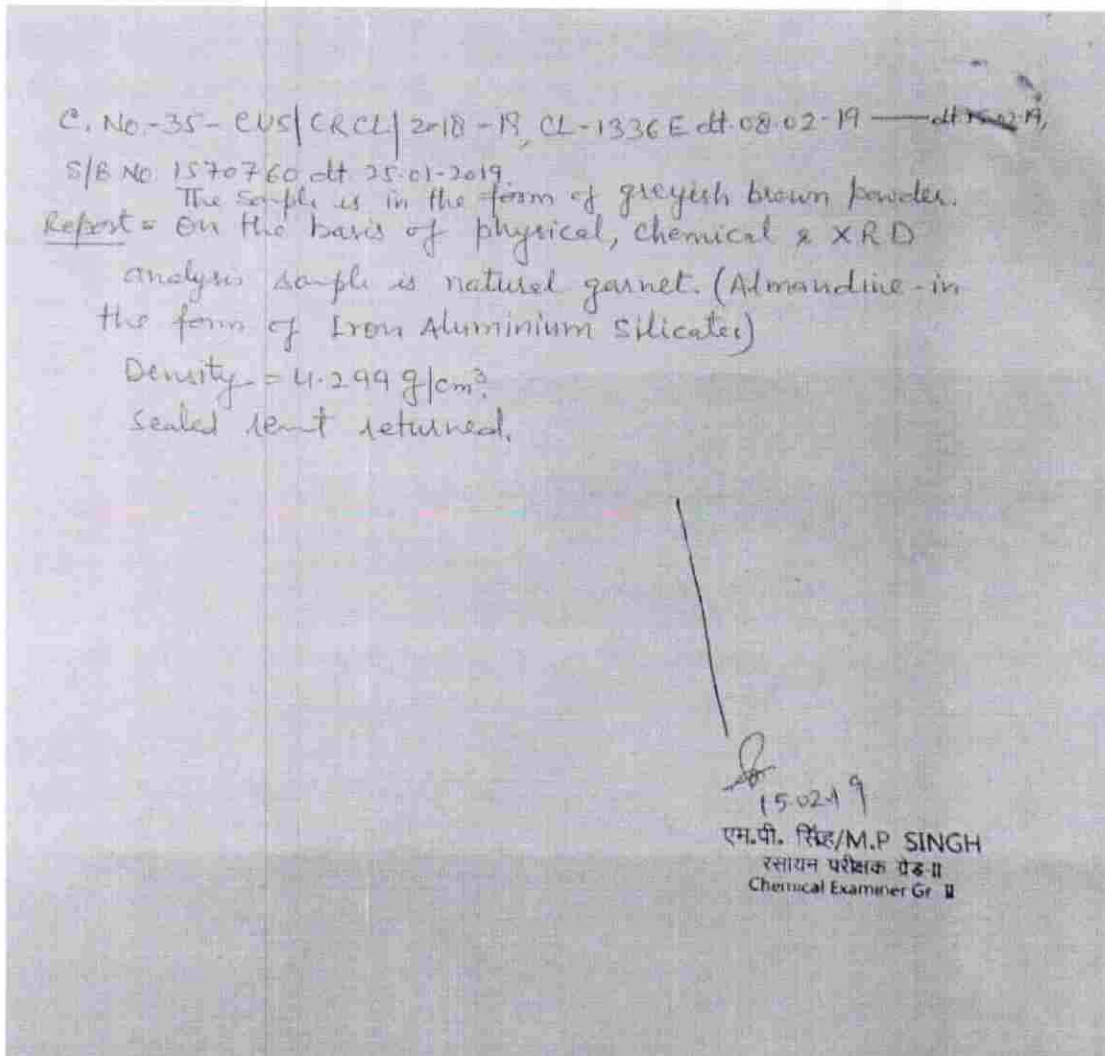 C. No.-35-CUS/CRCL/2018-19, CL-1336E dt. 08.02-19 — dt. 15.02.19,
S/B NO. 1570760 dt. 25.01-2019.
The sample is in the form of greyish brown powder.
Report = On the basis of physical, chemical & XRD
analysis sample is natural garnet. (Almandine-in
the form of Iron Aluminium Silicates)
Density = 4.299 g/cm³.
Sealed remt returned.
15.02.19
एम.पी. सिंह/M.P SINGH
रसायन परीक्षक ग्रेड-II
Chemical Examiner Gr II